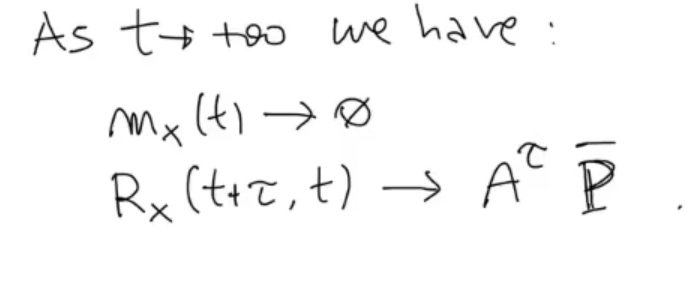 As t→+∞ we have:
mₓ(t) → ∅
Rₓ(t+τ, t) → A^τ P̅ .